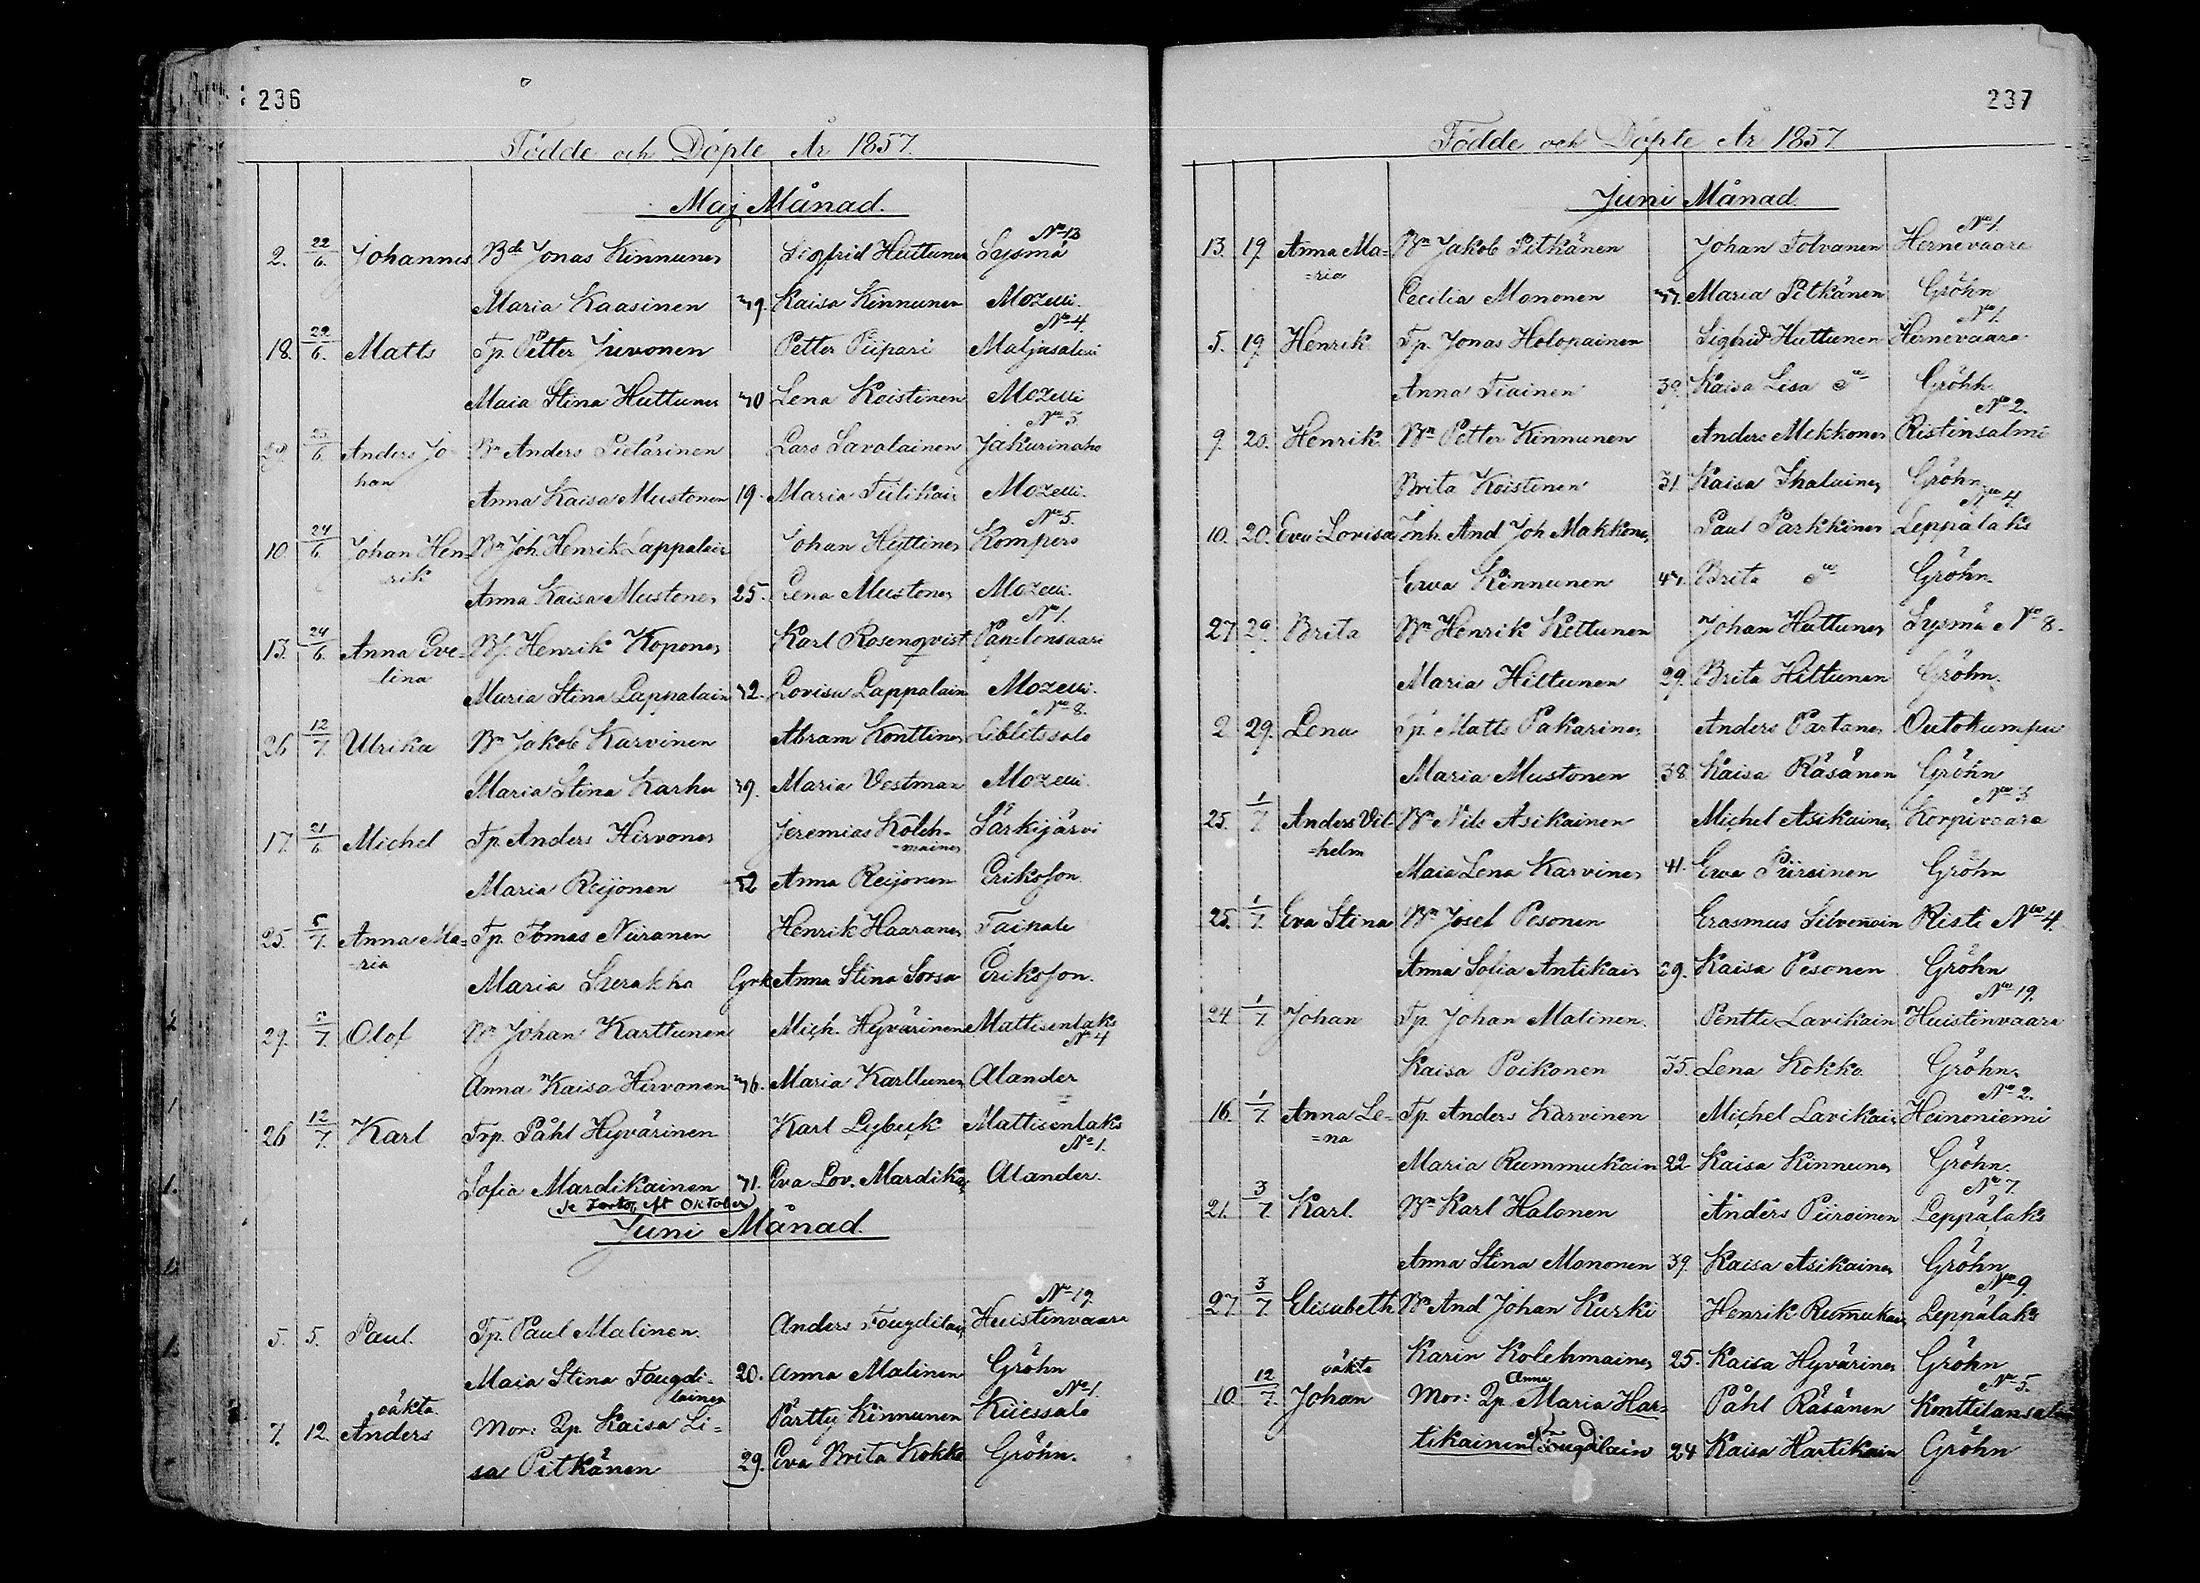 236
Födde och Döpte År 1857.
Maj Månad.
No 13
2. 22/6. Johannes Bde Jonas Kinnunen Sigfrid Huttunen Sysmä
Maria Kaasinen 39. Kaisa Kinnunen Mozelli.
No 4.
18. 29/6. Matts Tp. Petter Juvonen Petter Piipari Maljasalmi
Maia Stina Huttunen 30 Lena Koistinen Mozelli
No 3.
29. 25/6. Anders Jo- Bn Anders Pietarinen Lars Savolainen Jakurinaho
han
Anna Kaisa Mustonen 19. Maria Tiilikain Mozelli.
No 5.
10. 24/6 Johan Hen- Bn Joh. Henrik Lappalain Johan Hyttinen Kompero
rik
Anna Kaisa Mustonen 25. Lena Mustonen Mozelli.
No 1.
13. 24/6. Anna Eve- Bf. Henrik Koponen Karl Rosenqvist
lina
Maria Stina Lappalain 32. Lovisa Lappalain Mozelli.
No 8.
26 12/7. Ulrika Bn Jakob Karvinen Abram Konttinen Liblitssalo
Maria Stina Karhu 39. Maria Vestman Mozelli.
17. 21/6 Michel Tp. Anders Hirvonen Jeremias Koleh- Särkijärvi
=mainen
Maria Reijonen 32 Anna Reijonen Eriksson
25. 5/7. Anna Ma- Tp. Tomas Niiranen Henrik Haaranen Taipale
=ria
Maria Grek Anna Stina Sorsa Eriksson.
29. 5/7. Olof Bn Johan Karttunen Mich. Hyvärinen Mattisenlaks
No 4
Anna Kaisa Hirvonen 36. Maria Karttunen Alander
26 12/7. Karl Trp. Påhl Hyvärinen Karl Lybeck Mattisenlaks
No 1.
Sofia Mardikainen 31. Eva Lov. Mardikn Alander.
Se Forts. st Oktober
Juni Månad.
No 19.
5. 5. Paul. Tp. Paul Malinen. Anders Fougdilain Huistinvaara
Maia Stina Fougdi- 20. Anna Malinen Gröhn
lainen
No 1.
oäkta
7. 12. Anders Mor: Qp. Kaisa Li- Pärttÿ Kinnunen Kiiessalo
sa Pitkänen 29. Eva Brita Kokko Gröhn.
237
Födde och Döpte År 1857
Juni Månad.
No 1.
13. 19. Anna Ma- Bn Jakob Pitkänen Johan Tolvanen Hernevaara
=ria
Cecilia Mononen 37. Maria Pitkänen Gröhn
No 1.
5. 19. Henrik Tp. Jonas Holopainen Sigfrid Huttunen Hernevaara
Anna Tiainen 39. Kaisa Lisa do Gröhn
No 2.
9. 20. Henrik Bn Petter Kinnunen Anders Mikkonen Ristinsalmi
Brita Koistinen 31. Kaisa Ihalainen Gröhn
No 4
10. 20. Eva Lovisa Inh. And Joh Makkonen Paul Parkkinen Leppälaks
Ewa Kinnunen 47. Brita do Gröhn.
27. 29. Brita Bn Henrik Kettunen Johan Huttunen Sysmä No 8.
Maria Hiltunen 29. Brita Hiltunen Gröhn.
2. 29. Lena Tp. Matts Pakarinen Anders Partanen Outokumpu
Maria Mustonen 38. Kaisa Räsänen Gröhn
No 3.
25. 1/7. Anders Vil- Bn Nils Asikainen Michel Asikainen Korpivaara
=helm
Maia Lena Karvinen 41. Ewa Piirainen Gröhn
25. 1/7. Eva Stina Bn Josef Pesonen Erasmus Silvennoin Risti No 4.
Anna Sofia Antikain 29. Kaisa Pesonen Gröhn
No 19.
24. 1/7. Johan Tp. Johan Malinen. Pentti Lavikain Huistinvaara
Kaisa Poikonen 35. Lena Kokko Gröhn.
No 2.
16. 1/7. Anna Le- Tp. Anders Karvinen Michel Lavikain Heinoniemi
=na
Maria Rummukain 22 Kaisa Kinnunen Gröhn.
No 7.
21. 3/7. Karl. Bn Karl Halonen Anders Piiroinen Leppälaks
Anna Stina Mononen 39. Kaisa Asikainen Gröhn
No 9.
27. 3/7 Elisabeth Bn And. Johan Kurki Henrik Rumukain Leppälaks
Karin Kolehmainen 25. Kaisa Hyvärinen Gröhn
No 5.
oäkta Anna
10. 12/7. Johan Mor: Qp. Maria Har- Påhl Räsänen Konttilansalmi
tikainen Fougdilain 24 Kaisa Hartikain Gröhn